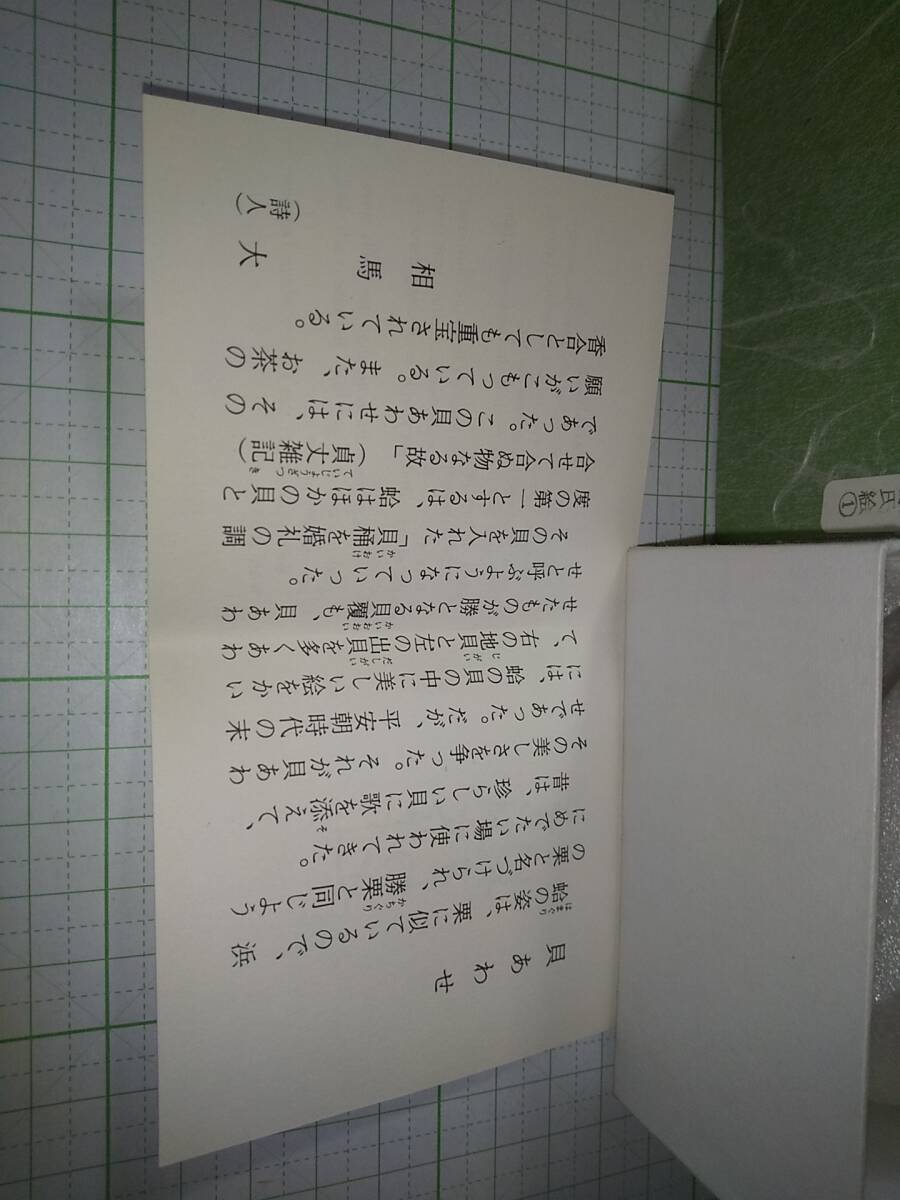 貝あわせ
蛤の姿は、栗に似ているので、浜
の栗と名づけられ、勝栗と同じよう
にめでたい場に使われてきた。
昔は、珍らしい貝に歌を添えて、
その美しさを争った。それが貝あわ
せであった。だが、平安朝時代の末
には、蛤の貝の中に美しい絵をかい
て、右の地貝と左の出貝を多くあわ
せたものが勝となる貝覆も、貝あわ
せと呼ぶようになっていった。
その貝を入れた「貝桶を婚礼の調
度の第一とするは、蛤はほかの貝と
合せて合ぬ物なる故」（貞丈雑記）
であった。この貝あわせには、その
願いがこもっている。また、お茶の
香合としても重宝されている。
相馬大
（詩人）
氏絵①